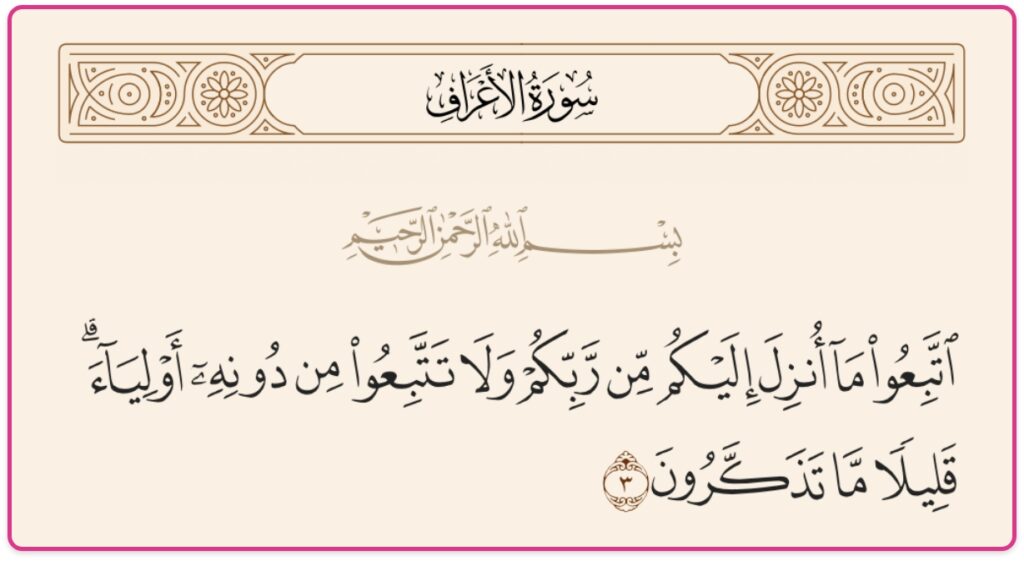 سُورَةُ الأَعْرَافِ
بِسْمِ اللَّهِ الرَّحْمَٰنِ الرَّحِيمِ
ٱتَّبِعُوا۟ مَآ أُنزِلَ إِلَيْكُم مِّن رَّبِّكُمْ وَلَا تَتَّبِعُوا۟ مِن دُونِهِۦٓ أَوْلِيَآءَ ۗ
قَلِيلًا مَّا تَذَكَّرُونَ ٣